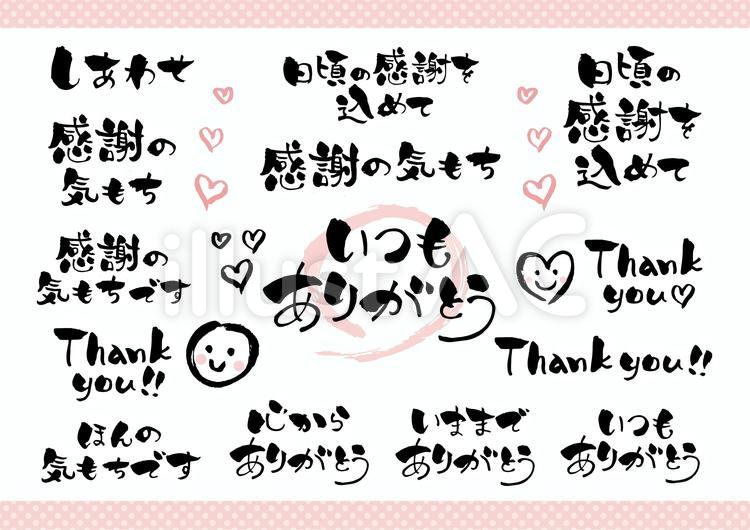 しあわせ
日頃の感謝を
込めて
日頃の
感謝を
込めて
感謝の
気もち
感謝の気もち
感謝の
気もちです
いつも
ありがとう
Thank
you♡
Thank
you!!
Thank you!!
ほんの
気もちです
心から
ありがとう
いままで
ありがとう
いつも
ありがとう
illust AC